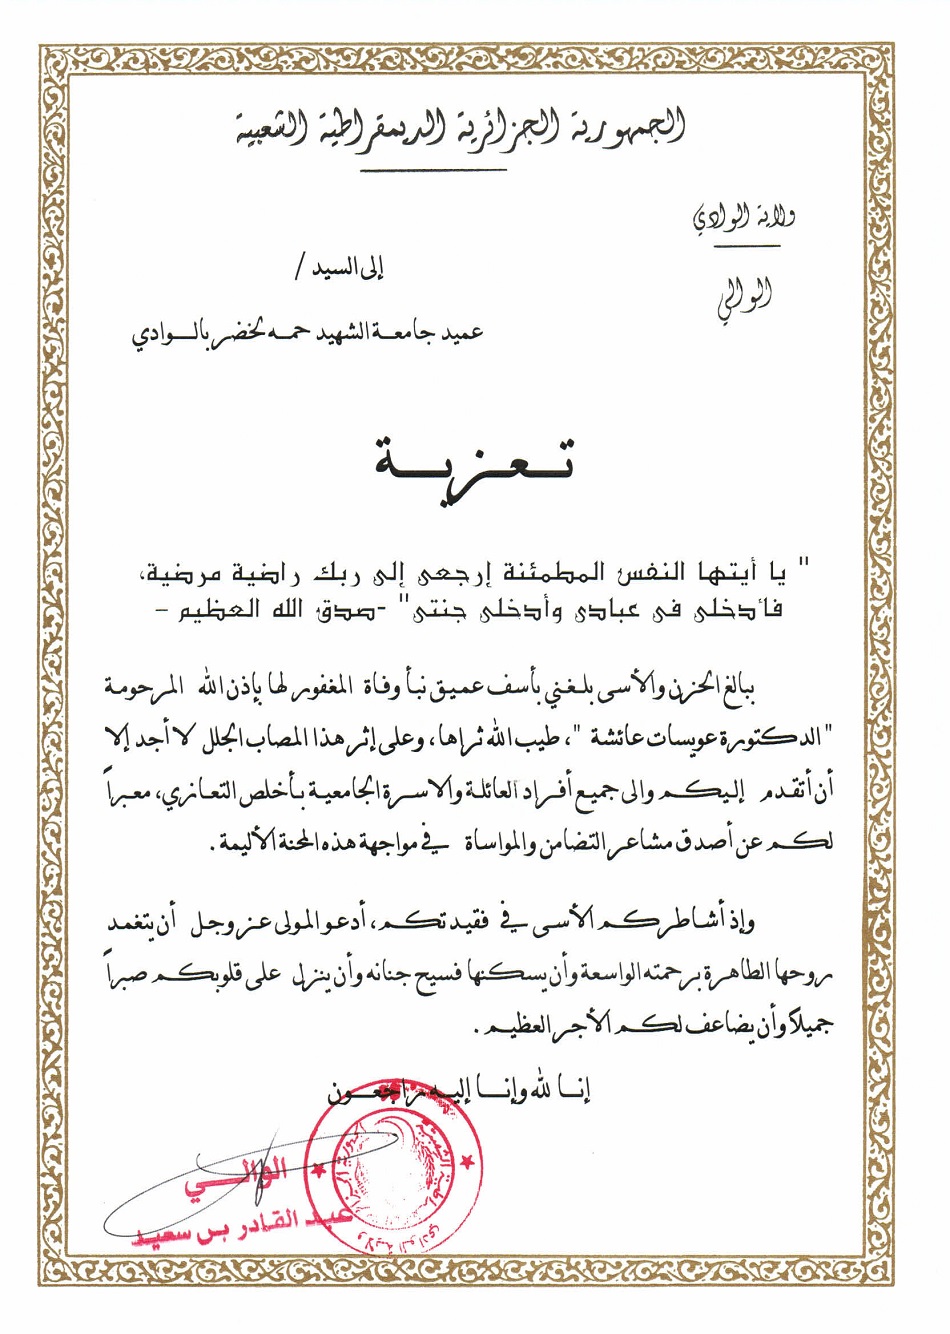 الجمهورية الجزائرية الديمقراطية الشعبية
ولاية الوادي
الوالي
إلى السيد /
عميد جامعة الشهيد حمه لخضر بالوادي
تعزية
" يا أيتها النفس المطمئنة إرجعي إلى ربك راضية مرضية،
فأدخلي في عبادي وأدخلي جنتي" -صدق الله العظيم –
ببالغ الحزن والأسى بلغني بأسف عميق نبأ وفاة المغفور لها بإذن الله المرحومة
"الدكتورة عويسات عائشة "، طيب الله ثراها، وعلى إثر هذا المصاب الجلل لا أجد إلا
أن أتقدم إليكم والى جميع أفراد العائلة والاسرة الجامعية بأخلص التعازي، معبراً
لكم عن أصدق مشاعر التضامن والمواساة في مواجهة هذه المحنة الأليمة .
وإذ أشاطركم الأسى في فقيدتكم، أدعو المولى عز وجل أن يتغمد
روحها الطاهرة برحمته الواسعة وأن يسكنها فسيح جنانه وأن ينزل على قلوبكم صبراً
جميلاً وأن يضاعف لكم الأجر العظيم .
إنا لله وإنا إليه راجعون
الوالي
عبد القادر بن سعيد
ولاية الوادي